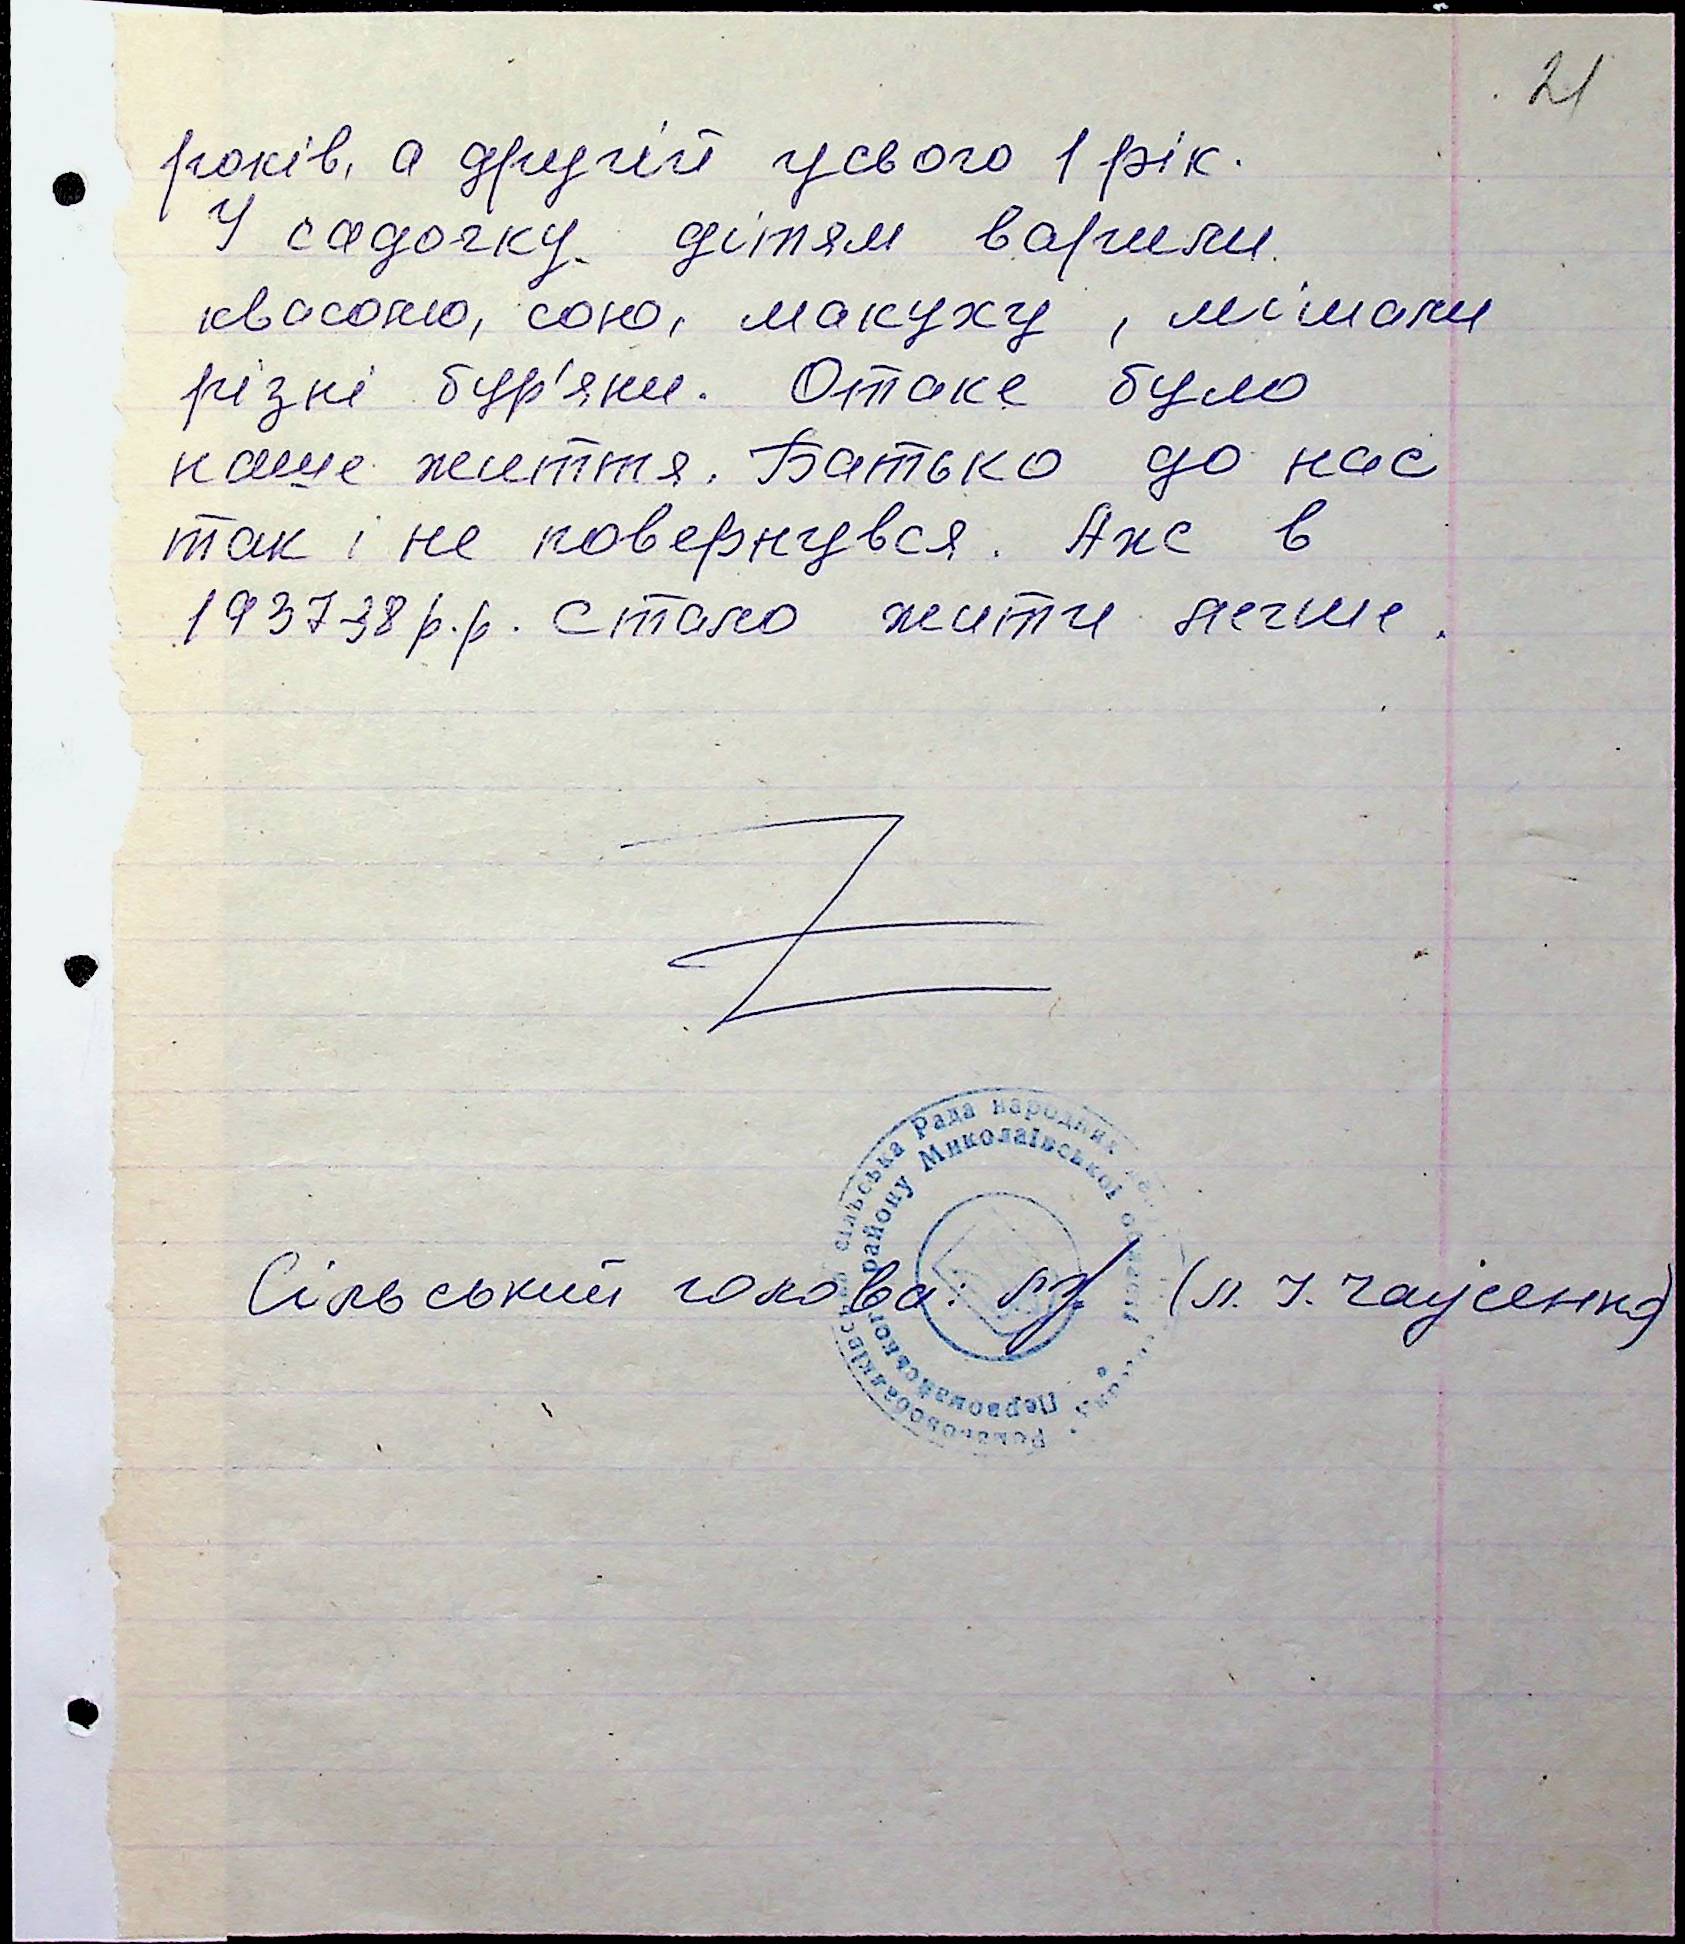 21
років, а другій усього 1 рік.
У садочку дітям варили
квасолю, сою, макуху, мішали
різні бур'яни. Отаке було
наше життя. Батько до нас
так і не повернувся. Аж в
1937-38 р.р. стало жити легше.
сільська Рада народних
Первомайського району Миколаївської області
Сільський голова: (Л. І. Чаусенко)